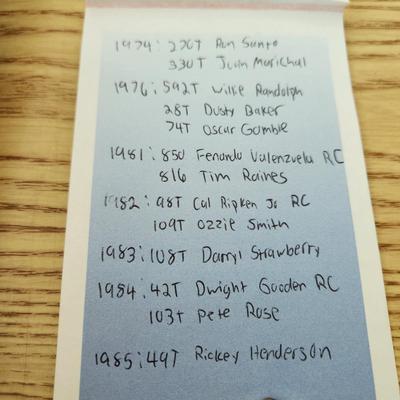 1974: 270T Ron Santo
330T Juan Marichal
1976: 592T Willie Randolph
28T Dusty Baker
74T Oscar Gamble
1981: 850 Fernando Valenzuela RC
816 Tim Raines
1982: 98T Cal Ripken Jr RC
109T Ozzie Smith
1983: 108T Darryl Strawberry
1984: 42T Dwight Gooden RC
103T Pete Rose
1985: 49T Rickey Henderson